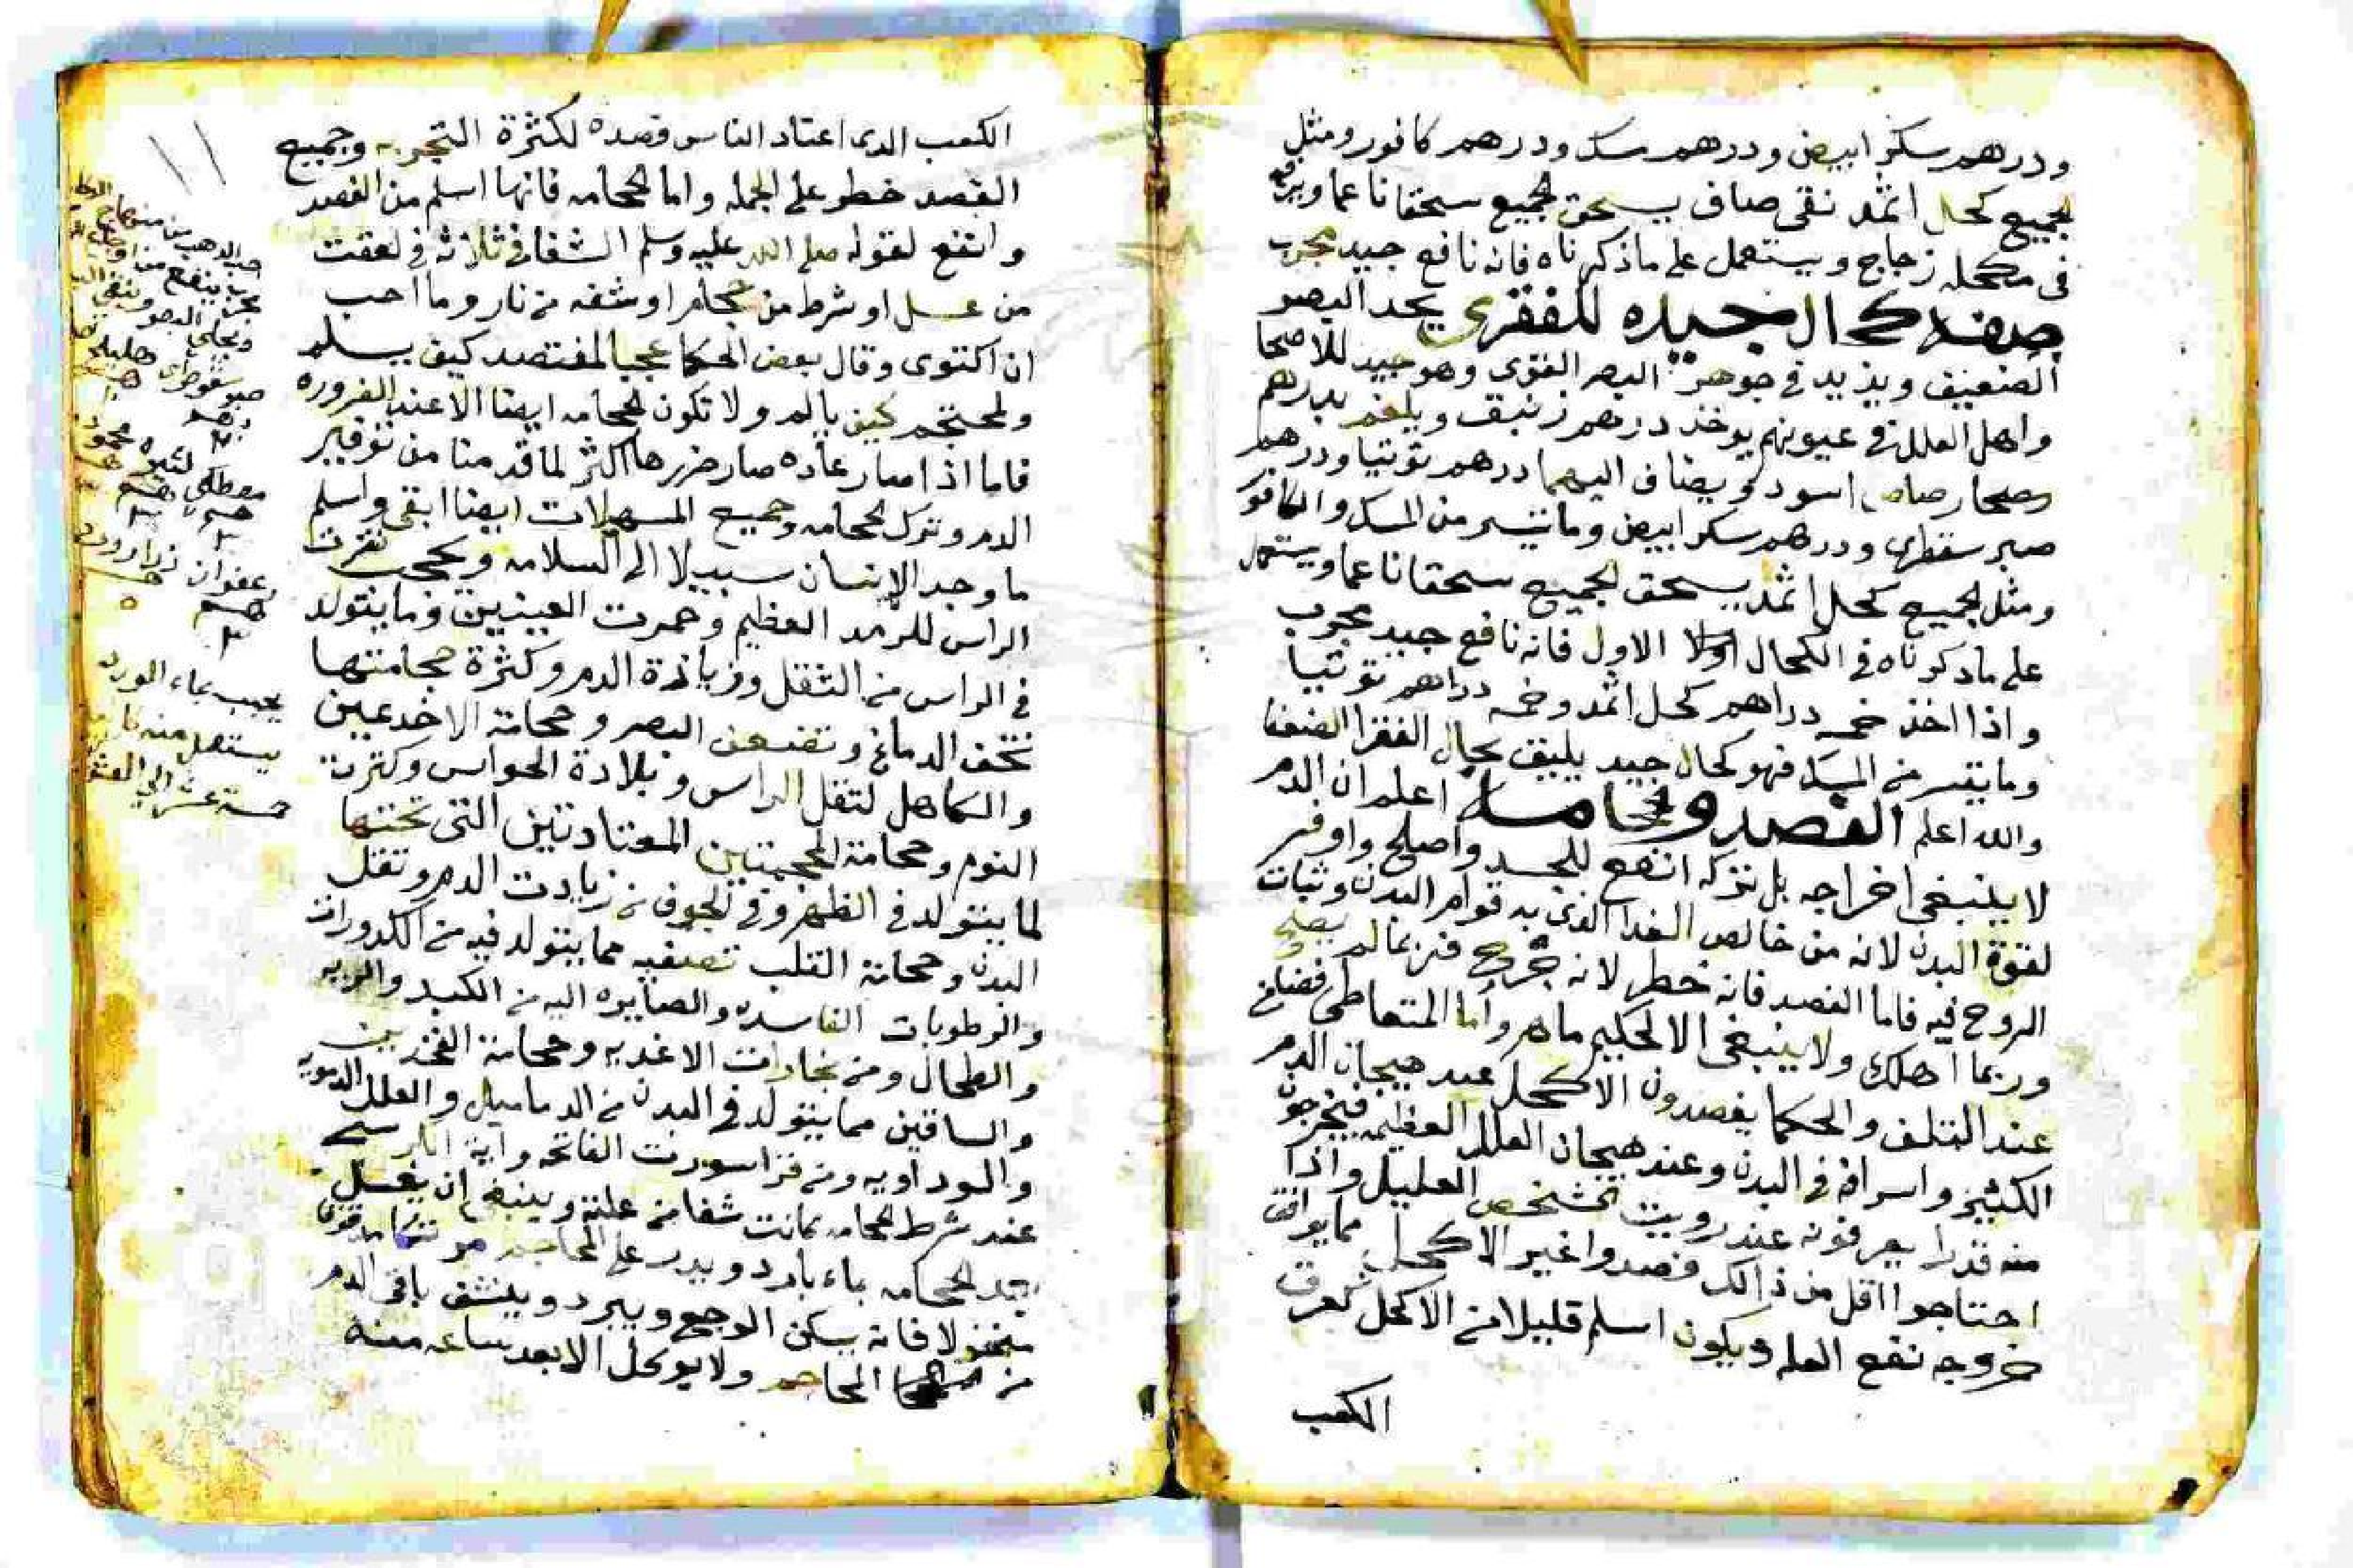 ودرهم سكر ابيض ودرهم مسك ودرهم كافور ومثل
الجميع كحل اثمد نقي صاف يسحق الجميع سحقا ناعما ويرفع
في مكحله زجاج ويستعمل على ماذكرناه فانه نافع جيد مجرب
صفة كحال جيده للفقرى يحد البصر
الضعيف ويزيد في جوهر البصر القوى وهو جيد للاصحا
واهل العلل في عيونهم يوخذ درهم زنبق ويلغم بدرهم
رصاص اسود ويضاف اليهما درهم توتيا ودرهم
صبر سقطرى ودرهم سكر ابيض وماتيسر من المسك والكافور
ومثل الجميع كحل اثمد يسحق الجميع سحقا ناعما ويستعمل
على ماذكرناه في الكحال الاول فانه نافع جيد مجرب
واذا اخذ خمسه دراهم كحل اثمد وخمسه دراهم توتيا
وماتيسر من المسك فهو كحال جيد يليق بحال الفقرا الضعفا
والله اعلم الفصد والحجامه اعلم ان الدم
لا ينبغي اخراجه بل تركه انفع للجسد واصلح واوفر
لقوة البدن لانه من خالص الغدا الذى به قوام البدن وثبات
الروح فيه فاما الفصد فانه خطر لانه جرح فربما لم يصلح
وربما اهلك ولا ينبغى الا لحكيم ماهر واما المتعاطى فضامن
عند التلف والحكما يفصدون الاكحل عند هيجان الدم
الكثير واسرافه في البدن وعند هيجان العلل العظيمه فيخرجون
منه قدرا يعرفونه عند رويت تشخص العليل واذا
احتاجوا اقل من ذالك فصدوا غير الاكحل مما يوافق
خروجه نفع العله ويكون اسلم قليلا من الاكحل كعرق
الكعب
١١
الكعب الدى اعتاد الناس فصده لكثرة التجربه وجميع
الفصد خطر على الجمله واما الحجامه فانها اسلم من الفصد
وانفع لقوله صلى الله عليه وسلم الشفا في ثلاثه في لعقت
من عسل او شرط من محجام او شقه من نار وما احب
ان اكتوى وقال بعض الحكما عجبا لمفتصد كيف يسلم
ولمحتجم كيف يالم ولا تكون الحجامه ايضا الا عند الضروره
فاما اذا صار عاده صار ضررها اكثر لما قدمنا من توفير
الدم وترك الحجامه وجميع المسهلات ايضا ابقى واسلم
ما وجد الانسان سبيلا الى السلامه ويحجب نقرت
الراس للرمد العظيم وحمرت العينين وما يتولد
في الراس من الثقل وزيادة الدم وكثرة حجامتها
تخف الدماغ وتضعف البصر وحجامة الاخدعين
والكاهل لثقل الراس وبلادة الحواس وكثرت
النوم وحجامة المحجمتين المعتادتين التى تحتها
لما يتولد في الظهر وفي الجوف من زيادت الدم وثقل
البدن وحجامة القلب تصفيه مما يتولد فيه من الكدورات
والرطوبات الفاسده والصايره اليه من الكبد والريه
والطحال ومن بخارات الاغديه وحجامة الفخدين
والساقين مما يتولد في البدن من الدماميل والعلل الدمويه
والسوداويه ومن قرا سورت الفاتحه واية الكرسي
عند شرط الحجامه كانت شفا من علته وينبغي ان يغسل
بعد الحجامه بماء بارد ويدر على المحاجم
فانه يسكن الوجع ويبرد وينشف باقى الدم
من المحاجم ولا يوكل الا بعد ساعه منه
حب الدهب من منهاج
مجرب ينفع من
ويجلى البصر وينقى
صبر سقوطرى هليلج
مصطكى كثيره محموده
زعفران زرارورد
يحبب بماء الورد
يستعمل منه
خمسة عشر الى العشرين